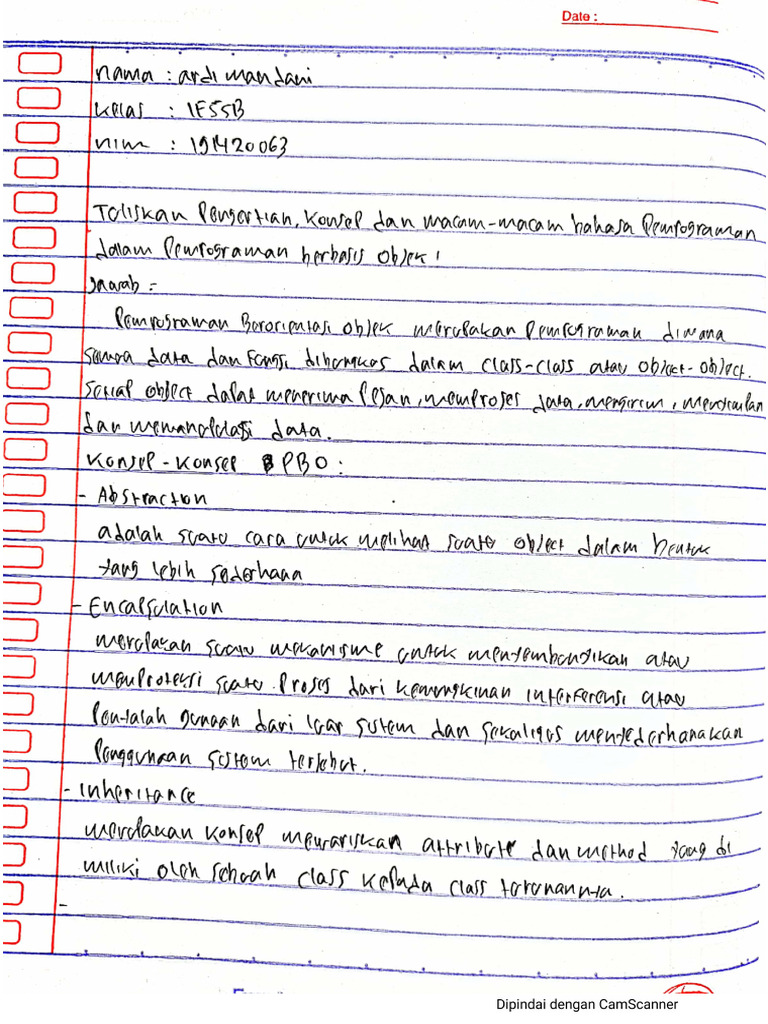 Date :
nama : ardi mandani
kelas : IF55B
nim : 191420063
Tuliskan Pengertian, Konsep dan macam-macam bahasa Pemrograman
dalam Pemrograman berbasis Objek!
Jawab =
Pemrograman Berorientasi Objek merupakan Pemrograman dimana
semua data dan fungsi dibungkus dalam class-class atau object-object.
setiap object dapat menerima pesan, memproses data, mengirim, menyimpan
dan memanipulasi data.
Konsep-Konsep PBO :
- Abstraction
adalah suatu cara untuk melihat suatu object dalam bentuk
yang lebih sederhana
- Encapsulation
merupakan suatu mekanisme untuk menyembunyikan atau
memproteksi suatu proses dari kemungkinan interferensi atau
Penyalah gunaan dari luar sistem dan sekaligus menyederhanakan
Penggunaan sistem tersebut.
- Inheritance
merupakan konsep mewariskan attribute dan method yang di
miliki oleh sebuah class kepada class turunannya.
-
Dipindai dengan CamScanner